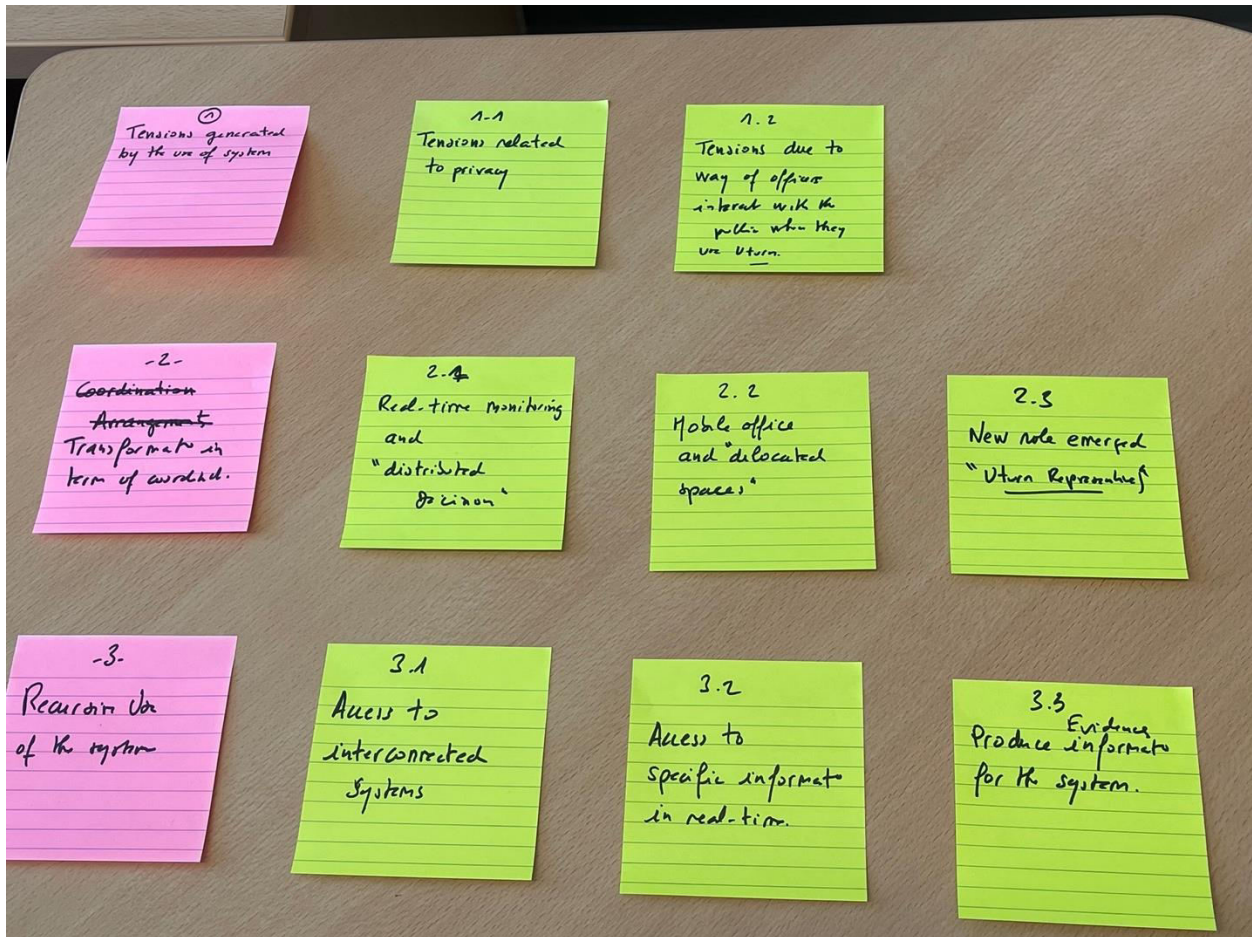 1
Tensions generated
by the use of system
1.1
Tensions related
to privacy
1.2
Tensions due to
way of officers
interact with the
public when they
use Uturn.
-2-
Coordination
Arrangements
Transformato in
term of coordinat.
2.1
Real-time monitoring
and
"distributed
decision"
2.2
Mobile office
and "delocated
spaces"
2.3
New role emerged
"Uturn Representives"
-3-
Recursive Use
of the system
3.1
Access to
interconnected
Systems
3.2
Access to
specific informato
in real-time.
3.3
Evidence
Produce informato
for the system.